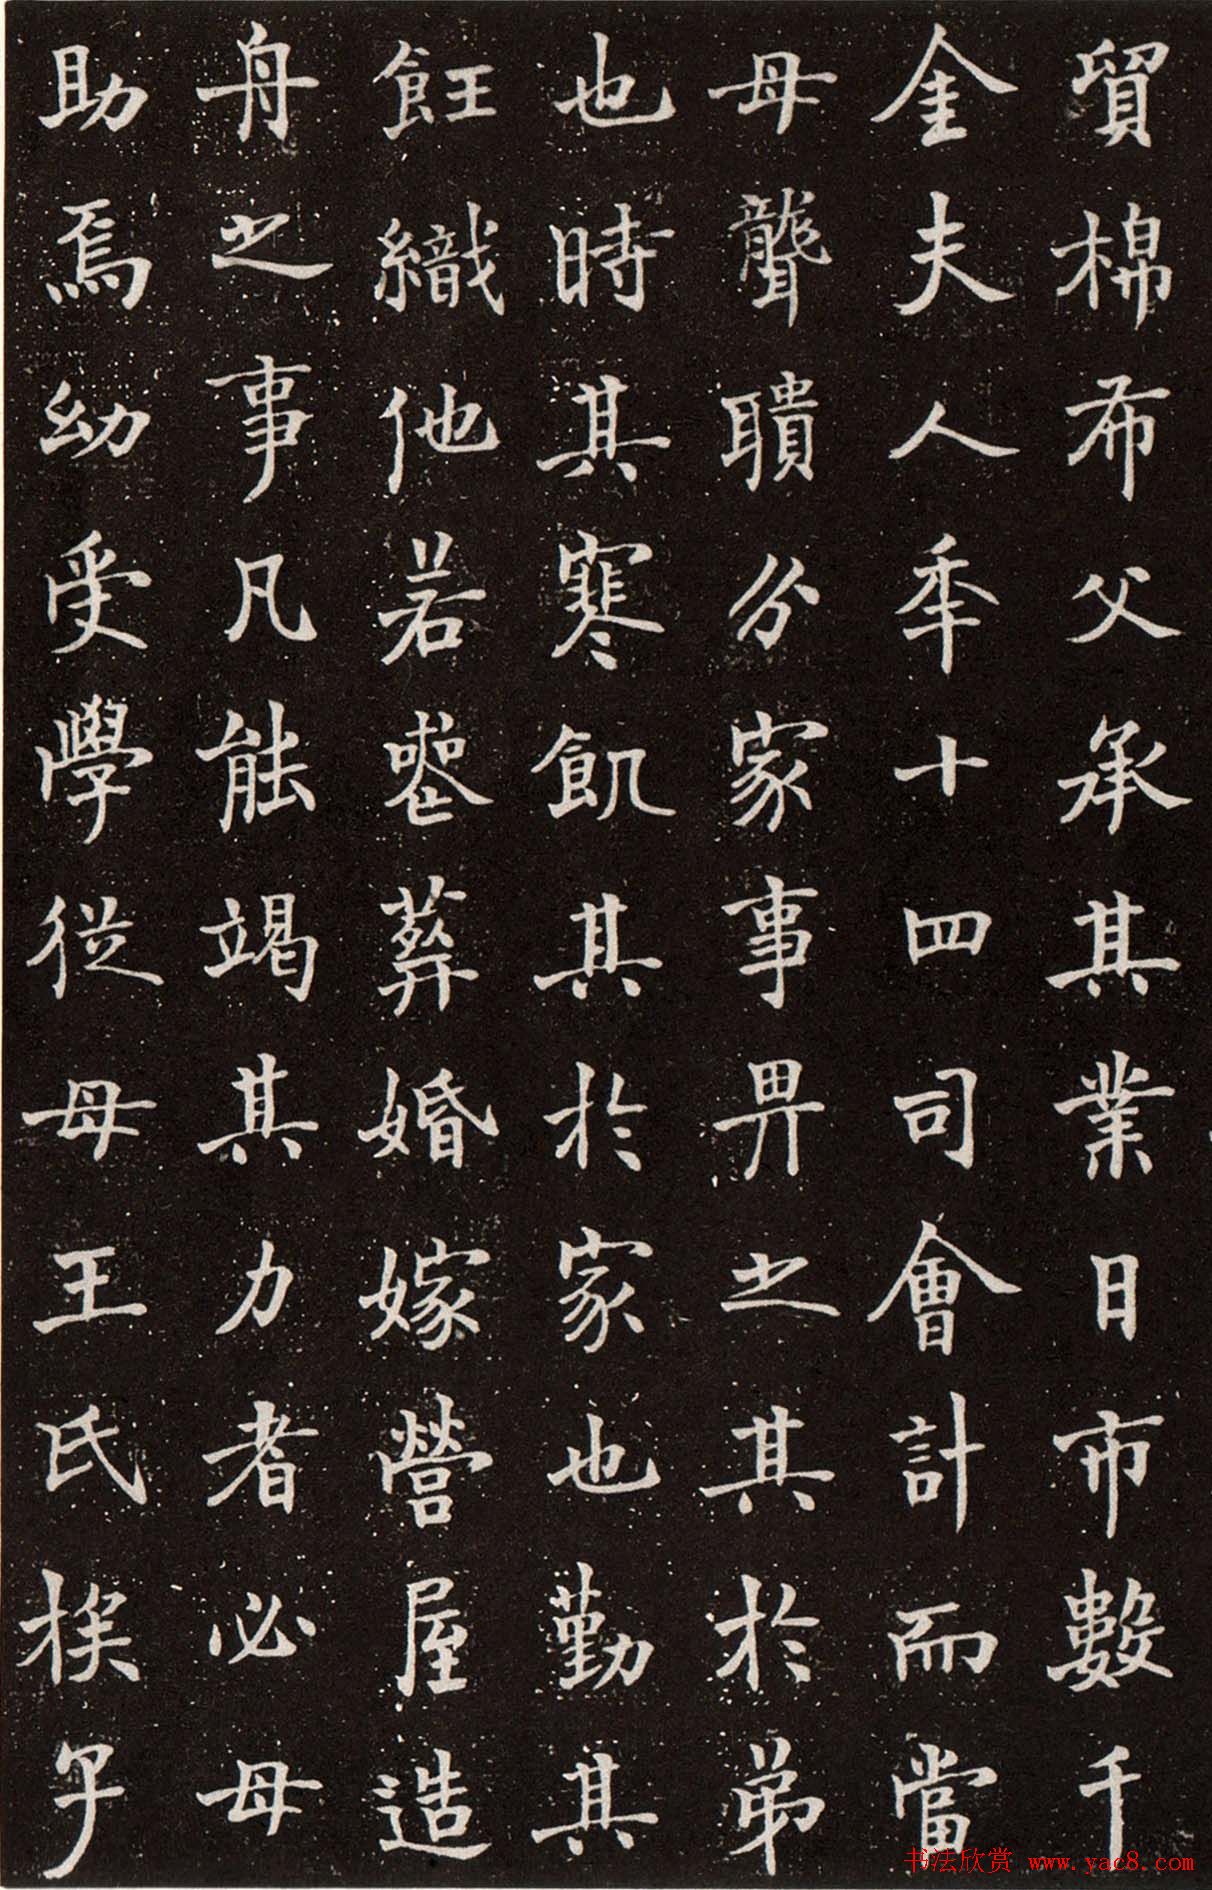 貿棉布父承其業日市數千
金夫人年十四司會計而當
母聾聵分家事畀之其於弟
也時其寒飢其於家也勤其
飪織他若喪葬婚嫁營屋造
舟之事凡能竭其力者必母
助焉幼受學從母王氏挨子
书法欣赏 www.yac8.com